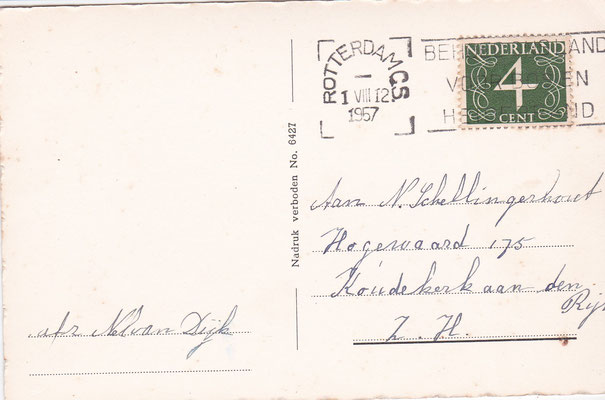 ROTTERDAM C.S.
1 VIII 12
1957
NEDERLAND
4
CENT
Nadruk verboden No. 6427
Aan N. Schellingerhout
Hogewaard 175
Koudekerk aan den
Rijn
Z. H.
afz Nel van Dijk